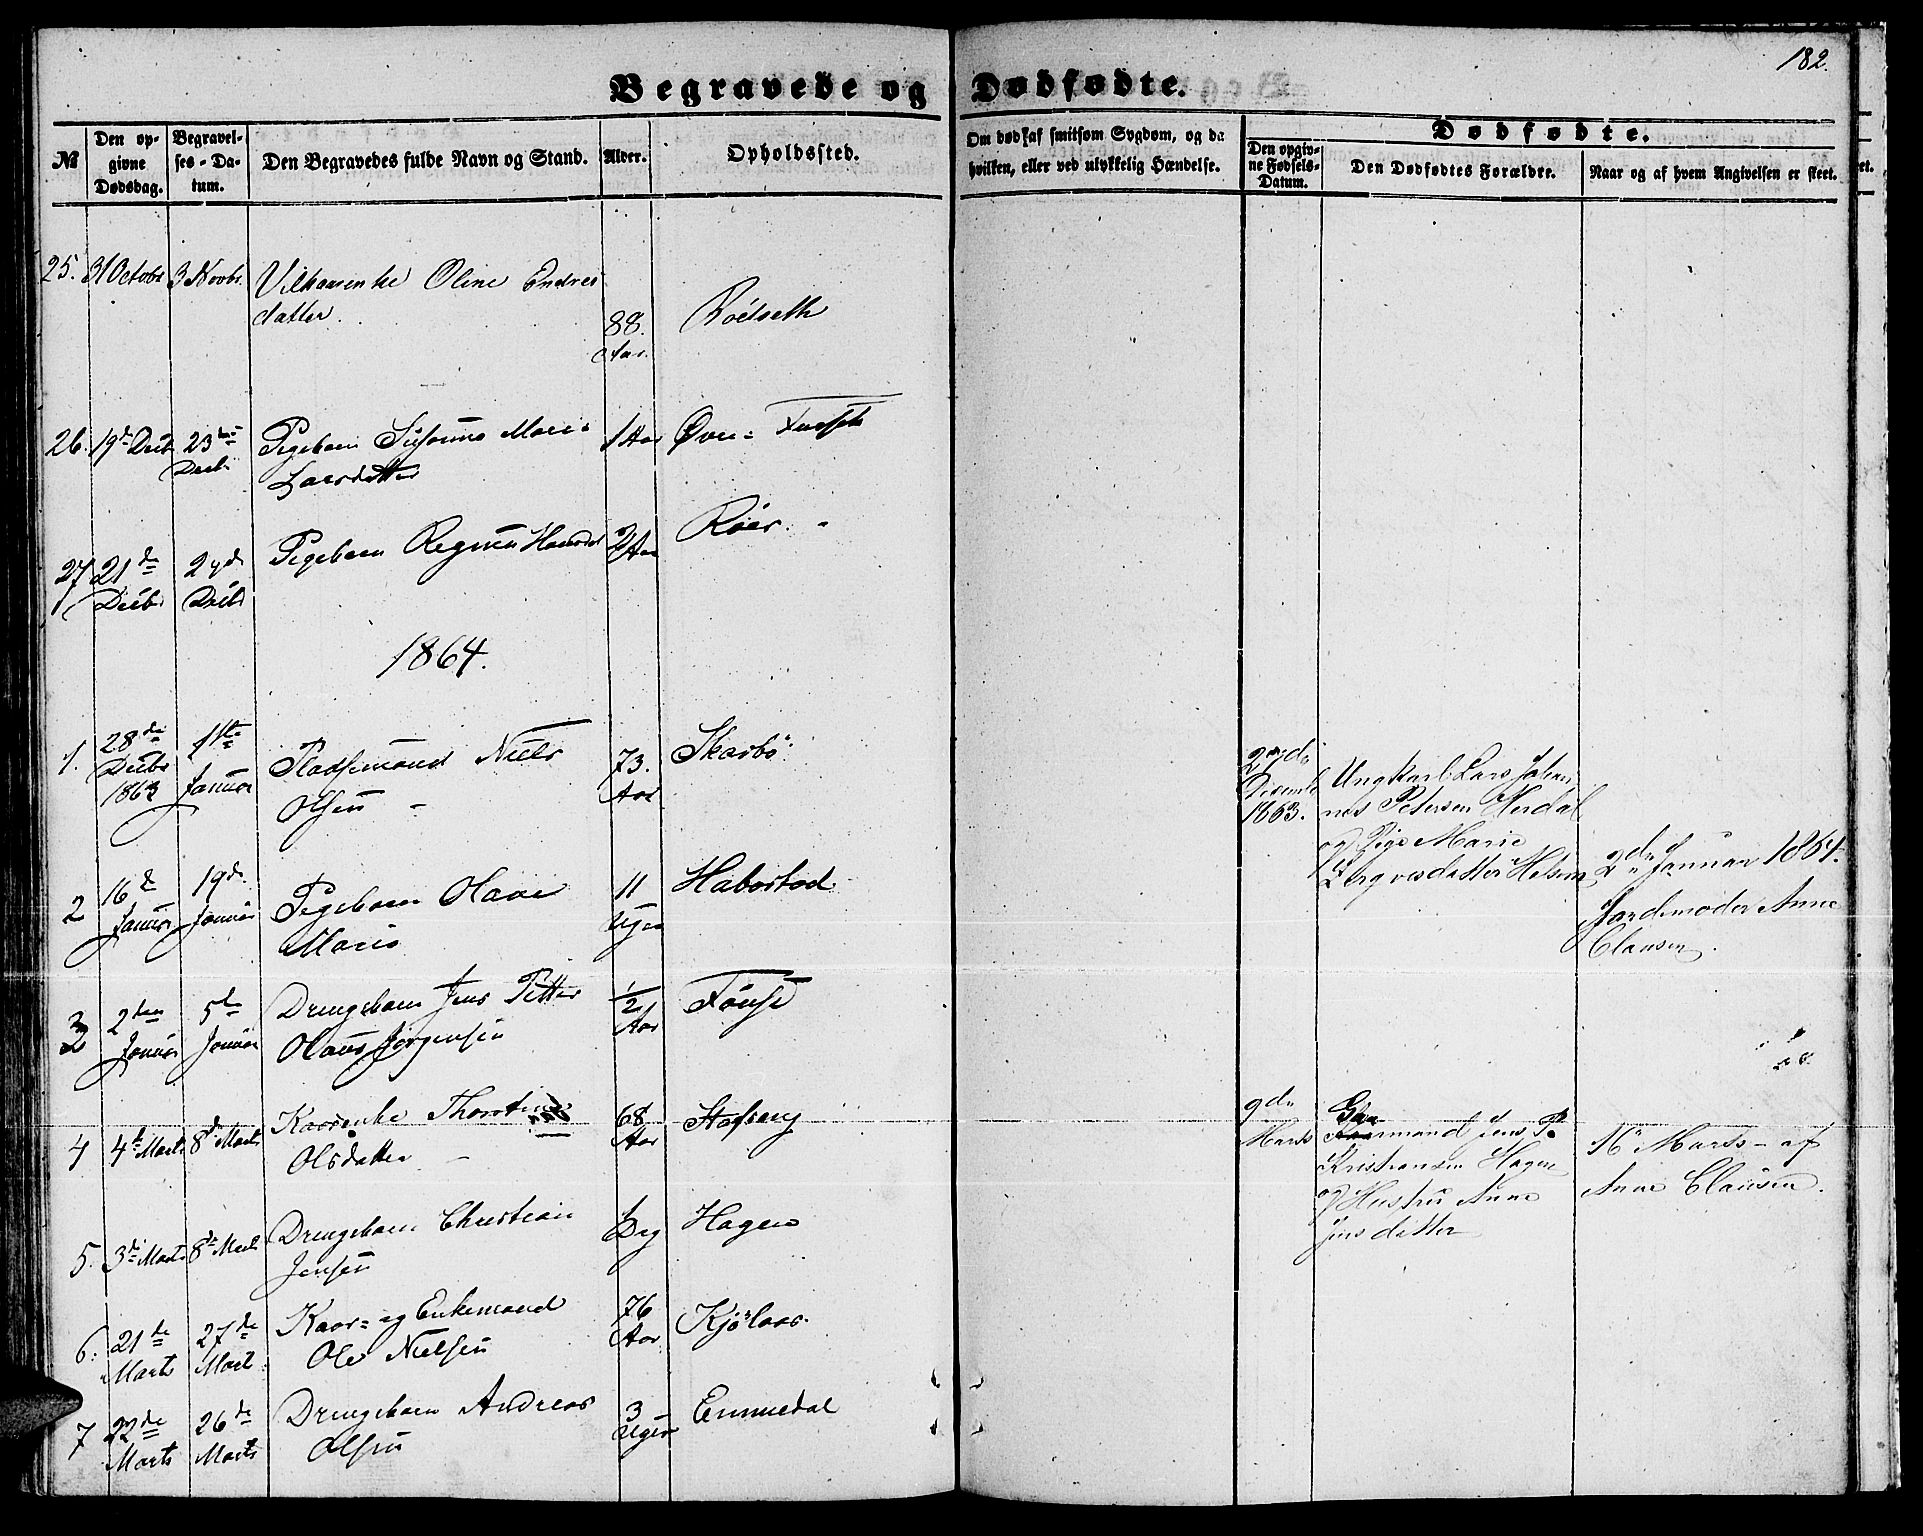 182.
Begravede og Dødfødte.
No
Den opgivne Dødsdag.
Begravelses-Datum.
Den Begravedes fulde Navn og Stand.
Alder.
Opholdssted.
Om død af smitsom Sygdom, og da
hvilken, eller ved ulykkelig Hændelse.
Dødfødte.
Den opgivne Fødsels-Datum.
Den Dødfødtes Forældre.
Naar og af hvem Angivelsen er skeet.
25. 31 Octobr 3 Novbr. Oline Endres
datter. 88. Aar. Rödseth
26. 19de Decb 23de Decbr Pigebarn Susanna Marie 1 Aar Øvre=
Larsdatter
27 21de Decbr Decbr Pigebarn 2 Aar Röer.
1864.
1. 28de Decbr 1863 1ste Januar Pladsemand Niels 73. Aar Skarbö.
Olsen -
2 16de Januar 19de Januar Pigebarn Olave 11 Uger Habostad
Marie
3 2den Januar 5te Januar Drengebarn Jens Petter 1/2 Aar
Olaus Jörgensen
4 4de Marts 8de Marts 68 Aar
Olsdatter -
5. 3de Marts 8de Marts Drengebarn Christian 1 Dag Hagen
Jensen
6. 21de Marts 27de Marts Kaar= og Enkemand 76 Aar Kjölaas.
Ole Nielsen
7 22de Marts 26de Marts Drengebarn Andreas 3 Uger Emmedal
Olsen
December 1863. Ungkarl Lars Johan
nes Petersen Herdal
og Pige Marie
2de Januar 1864.
Jordemoder Anne
Clausen.
9de Marts mand Jens P.
Kristiansen Hagen
og Hustru Anne
Jensdatter
16 Marts - af
Anne Clausen.